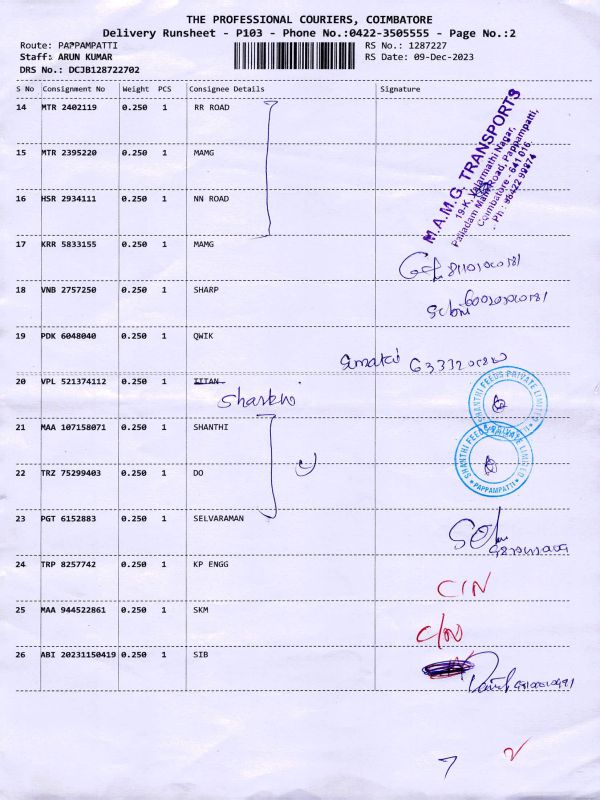 THE PROFESSIONAL COURIERS, COIMBATORE
Delivery Runsheet - P103 - Phone No.:0422-3505555 - Page No.:2
Route: PAPPAMPATTI RS No.: 1287227
Staff: ARUN KUMAR RS Date: 09-Dec-2023
DRS No.: DCJB128722702
S No Consignment No Weight PCS Consignee Details Signature
14 MTR 2402119 0.250 1 RR ROAD
M.A.M.G. TRANSPORTS
19-K, Valarmathi Nagar,
Palladam Main Road, Pappampatti,
Coimbatore - 641 016.
15 MTR 2395220 0.250 1 MAMG
16 HSR 2934111 0.250 1 NN ROAD
17 KRR 5833155 0.250 1 MAMG
18 VNB 2757250 0.250 1 SHARP
19 PDK 6048040 0.250 1 QWIK
20 VPL 521374112 0.250 1 TITAN
SHANTHI FEEDS PRIVATE LIMITED
21 MAA 107158071 0.250 1 SHANTHI
SHANTHI FEEDS PRIVATE LIMITED
PAPPAMPATTI
22 TRZ 75299403 0.250 1 DO
23 PGT 6152883 0.250 1 SELVARAMAN
24 TRP 8257742 0.250 1 KP ENGG
C/N
25 MAA 944522861 0.250 1 SKM
C/N
26 ABI 20231150419 0.250 1 SIB
7 2